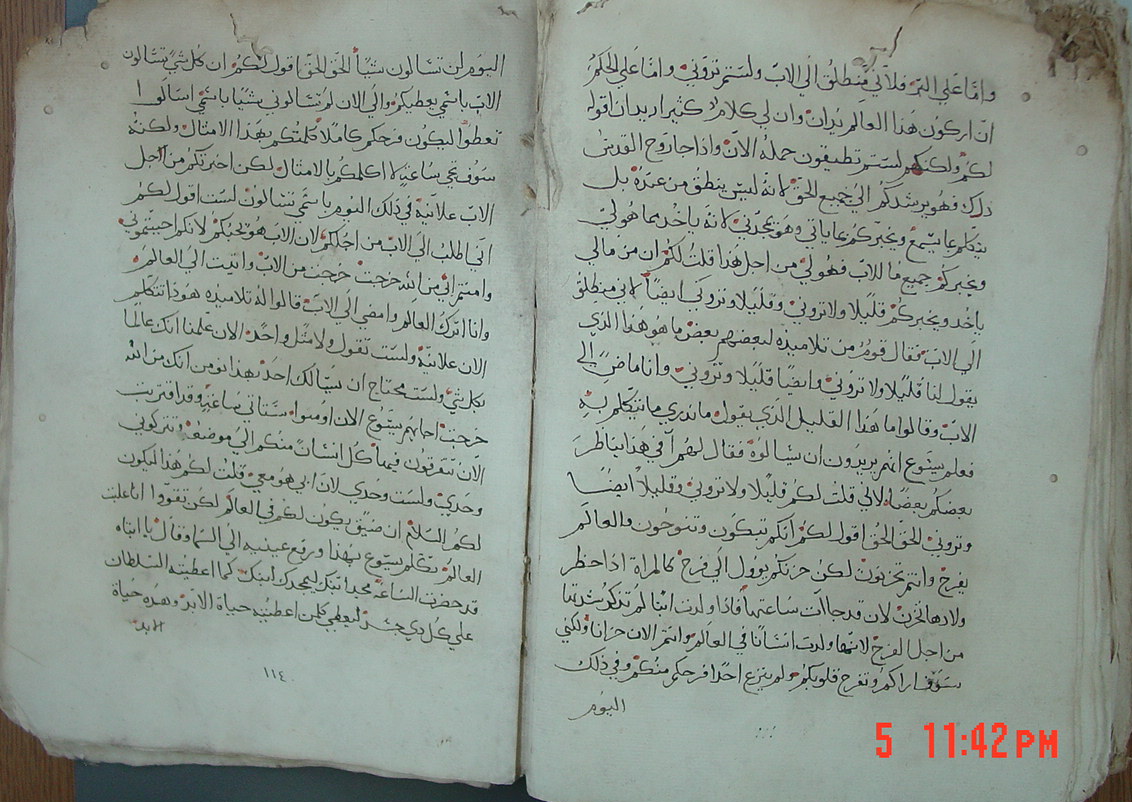 واما على البر فلاني منطلق الى الاب ولستم تروني واما على الحكم
ان اركون هذا العالم يدان وان لي كلام كثير اريد ان اقوله
لكم ولكنكم لستم تطيقون حمله الان واذا جا روح القدس
ذلك فهو يرشدكم الي جميع الحق لانه ليس ينطق من عنده بل
يتكلم بما يسمع ويخبركم بما ياتي وهو يمجدني لانه ياخد مما هو لي
ويخبركم جميع ما للاب فهو لي من اجل هذا قلت لكم ان من مالي
ياخد ويخبركم قليلا ولا تروني وقليلا وتروني ايضا لاني منطلق
الي الاب فقال قوم من تلاميذه لبعضهم بعض ما هو هذا الذي
يقول لنا قليلا ولا تروني وايضا قليلا وتروني وانا ماض الي
الاب وقالوا ما هذا القليل الذي يقول ما ندري ما يتكلم به
فعلم يسوع انهم يريدون ان يسالوه فقال لهم افي هذا يناظر
بعضكم بعضا لاني قلت لكم قليلا ولا تروني وقليلا ايضا
وتروني الحق الحق اقول لكم انكم تبكون وتنوحون والعالم
يفرح وانتم تحزنون لكن حزنكم يوول الي فرح كالمراة اذا حظر
ولادها تحزن لان قد جات ساعتها فاذا ولدت ابنا لم تذكر شدتها
من اجل الفرح لانها ولدت انسانا في العالم وانتم الان حزانا ولكني
سوف اراكم وتفرح قلوبكم ولم ينزع احدا فرحكم منكم وفي ذلك
اليوم
اليوم لن تسالون شيئا الحق الحق اقول لكم ان كل شي تسالون
الاب باسمي يعطيكم والي الان لم تسالوني بشيا باسمي اسالوا
تعطوا ليكون فرحكم كاملا كلمتكم بهذا الامثال ولكنه
سوف تجي ساعة لا اكلمكم بالامثال لكن اخبرتكم من اجل
الاب علانية في ذلك اليوم باسمي تسالون لست اقول لكم
اني اطلب الي الاب من اجلكم لان الاب هو يحبكم لانكم احببتموني
وامنتم اني من الله خرجت خرجت من الاب واتيت الي العالم
وانا اترك العالم وامضي الي الاب قالوا له تلاميذه هوذا تتكلم
الان علانية ولست تقول ولا مثل واحد الان علمنا انك عالما
بكل شي ولست محتاج ان يسالك احد بهذا نومن انك من الله
خرجت اجابهم يسوع الان اومنوا ستاتي ساعة وقد اقتربت
الان تتفرقون فيها كل انسان منكم الي موضعه وتتركوني
وحدي ولست وحدي لان ابي هو معي قلت لكم هذا ليكون
لكم السلام ان ضيق يكون لكم في العالم لكن تقووا انا غلبت
العالم تكلم يسوع بهذا ورفع عينيه الي السما وقال يا ابتاه
قد حضرت الساعة مجد ابنك ليمجدك ابنك كما اعطيته السلطان
علي كل ذي جسد ليعطي كلمن اعطيته حياة الابد وهذه حياة
الابد
١١٤
5 11:42 PM